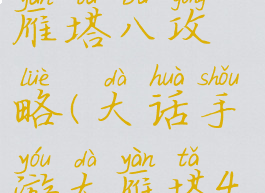 yàn tǎ bā gōng
雁塔八攻
lüè dà huà shǒu
略(大话手
yóu dà yàn tǎ
游大雁塔4